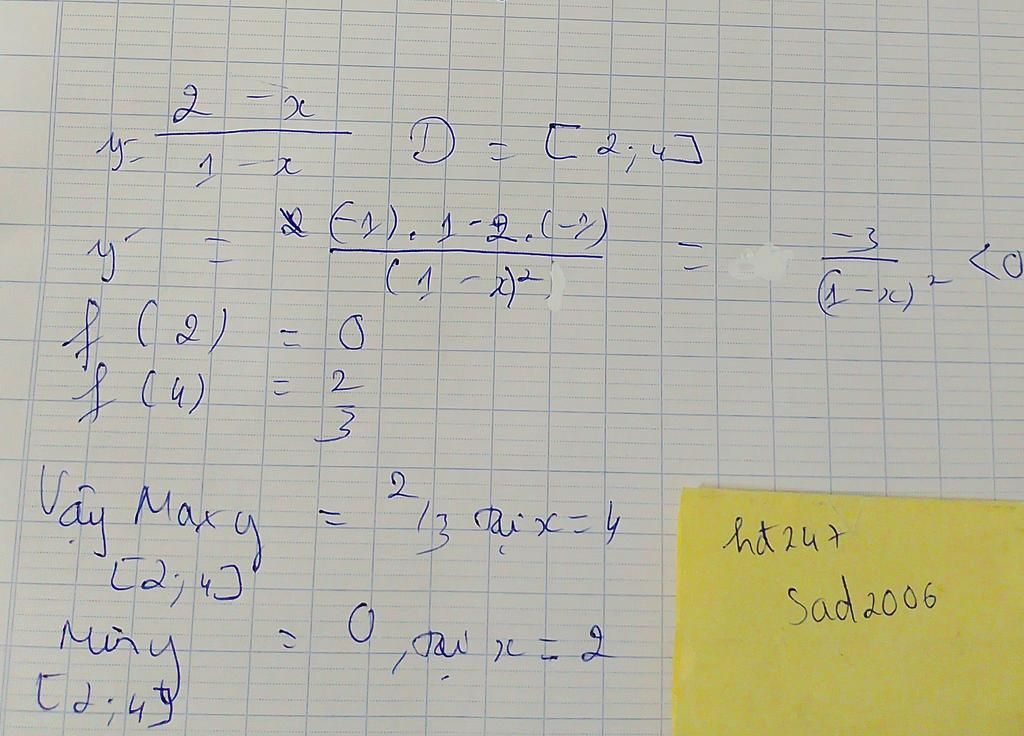 y = (2 - x) / (1 - x) D = [2; 4]
y' = ((-1) . 1 - 2 . (-1)) / (1 - x)² = -3 / (1 - x)² < 0
f (2) = 0
f (4) = 2/3
Vậy Max y = 2/3 tại x = 4
[2; 4]
Min y = 0, tại x = 2
[2; 4]
hd247
Sad2006